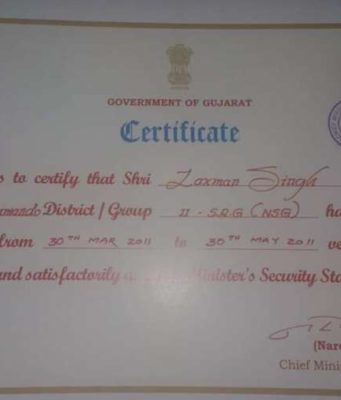 GOVERNMENT OF GUJARAT
Certificate
s to certify that Shri Laxman Singh
mando District / Group II - S.R.G (NSG) ha
from 30TH MAR 2011 to 30TH MAY 2011 ve
and satisfactorily Minister's Security Sta
(Nare
Chief Mini